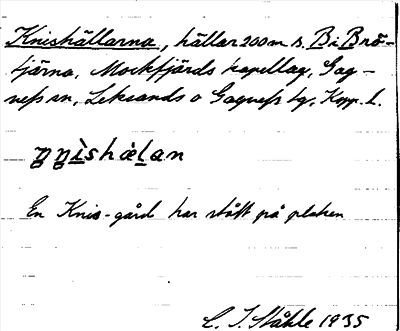 Knishällarna, hällar 200 m s. Bi Brö-
tjärna, Mockfjärds kapellag, Gag-
nefs sn, Leksands o Gagnefs tg, Kopp. l.
En Knis-gård har stått på platsen
C. I. Ståhle 1935